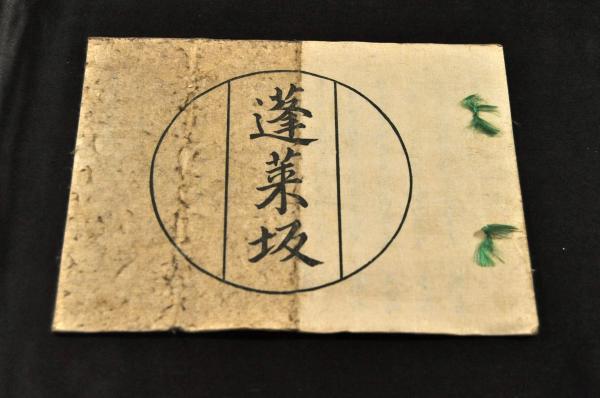 蓬莱坂